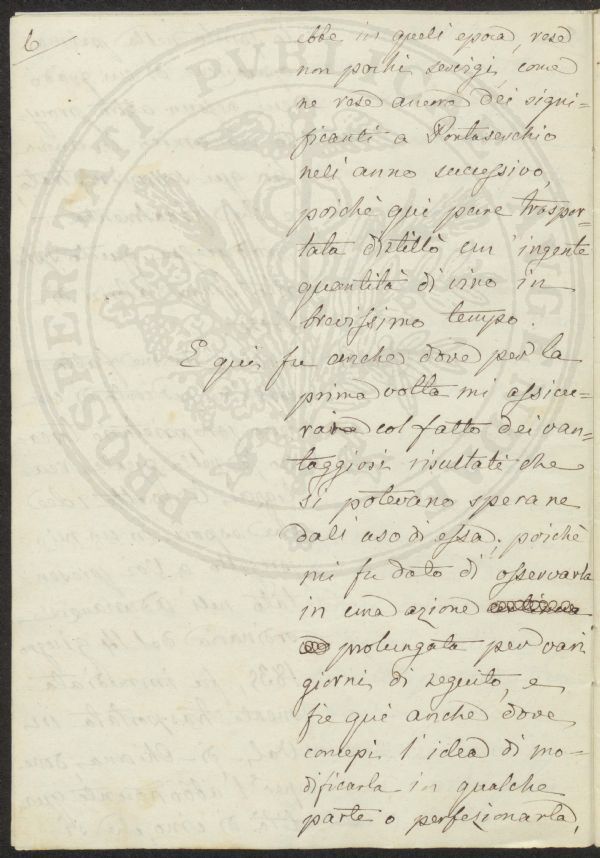 6
ebbe in queli epoca, rese
non pochi servigj, come
ne rese ancora dei signi-
ficanti a Pontasserchio
nell'anno successivo,
poichè qui pure traspor-
tata distillò un'ingente
quantità di vino in
brevissimo tempo.
E qui fu anche dove per la
prima volta mi assicu-
rai col fatto dei van-
taggiosi risultati che
si potevano sperare
dall'uso di essa; poichè
mi fu dato di osservarla
in una azione continua
prolungata per vari
giorni di seguito, e
fu qui anche dove
concepì l'idea di mo-
dificarla in qualche
parte o perfezionarla,
PROSPERITATI PVBLICAE AVG